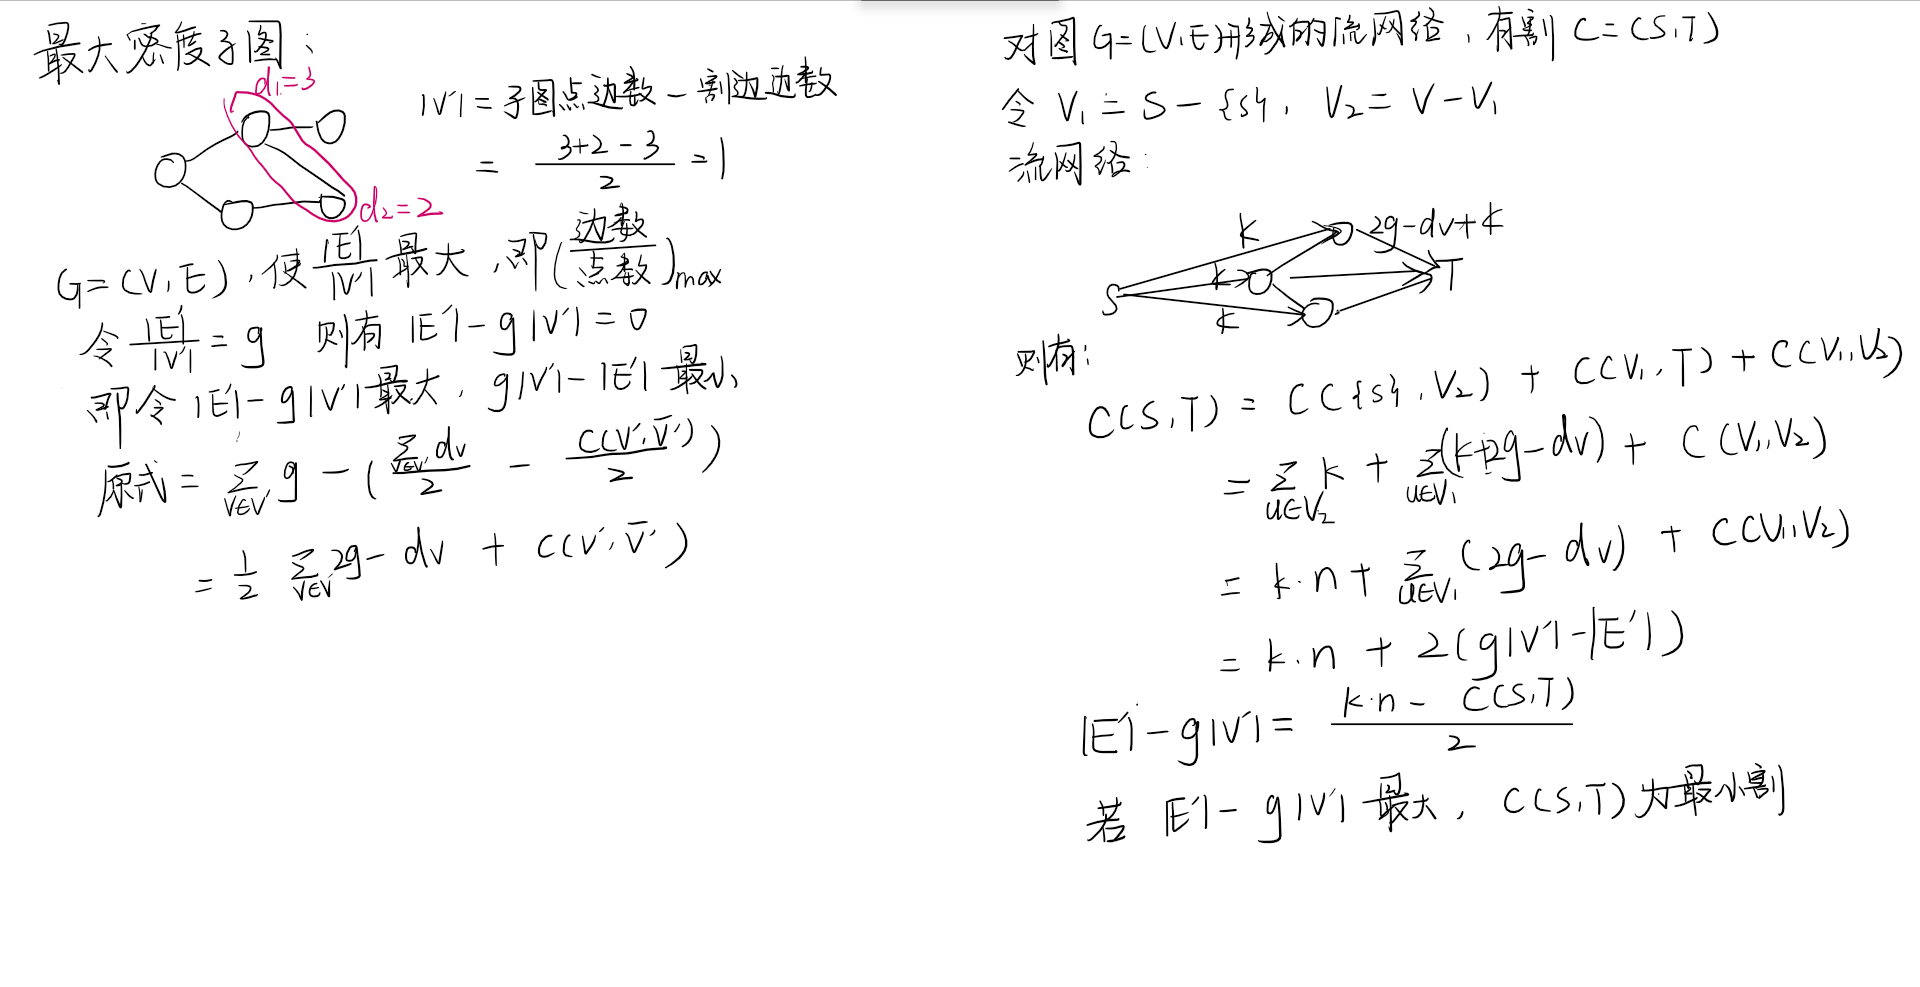 最大密度子图:
d₁=3
|V'| = 子图点边数 - 割边边数
= (3+2-3)/2 = 1
d₂=2
G=(V,E),使 |E'|/|V'| 最大,即(边数/点数)max
令 |E'|/|V'| = g 则有 |E'|-g|V'|=0
即令|E'|-g|V'|最大,g|V'|-|E'|最小
原式 = Σ_{v∈V'} g - (Σ_{v∈V'} dv / 2 - C(V',V̄') / 2)
= 1/2 Σ_{v∈V'} 2g-dv + C(V',V̄'))
对图G=(V,E)形成的流网络,有割C=(S,T)
令 V₁ = S-{s},V₂ = V-V₁
流网络:
K 2g-dv+k
K T
S
K
则有:
C(S,T) = C({s},V₂) + C(V₁,T) + C(V₁,V₂)
= Σ_{u∈V₂} k + Σ_{u∈V₁} (k+2g-dv) + C(V₁,V₂)
= k·n + Σ_{u∈V₁} (2g-dv) + C(V₁,V₂)
= k·n + 2(g|V'|-|E'|)
|E'|-g|V'| = (k·n - C(S,T))/2
若 |E'|-g|V'| 最大,C(S,T)为最小割